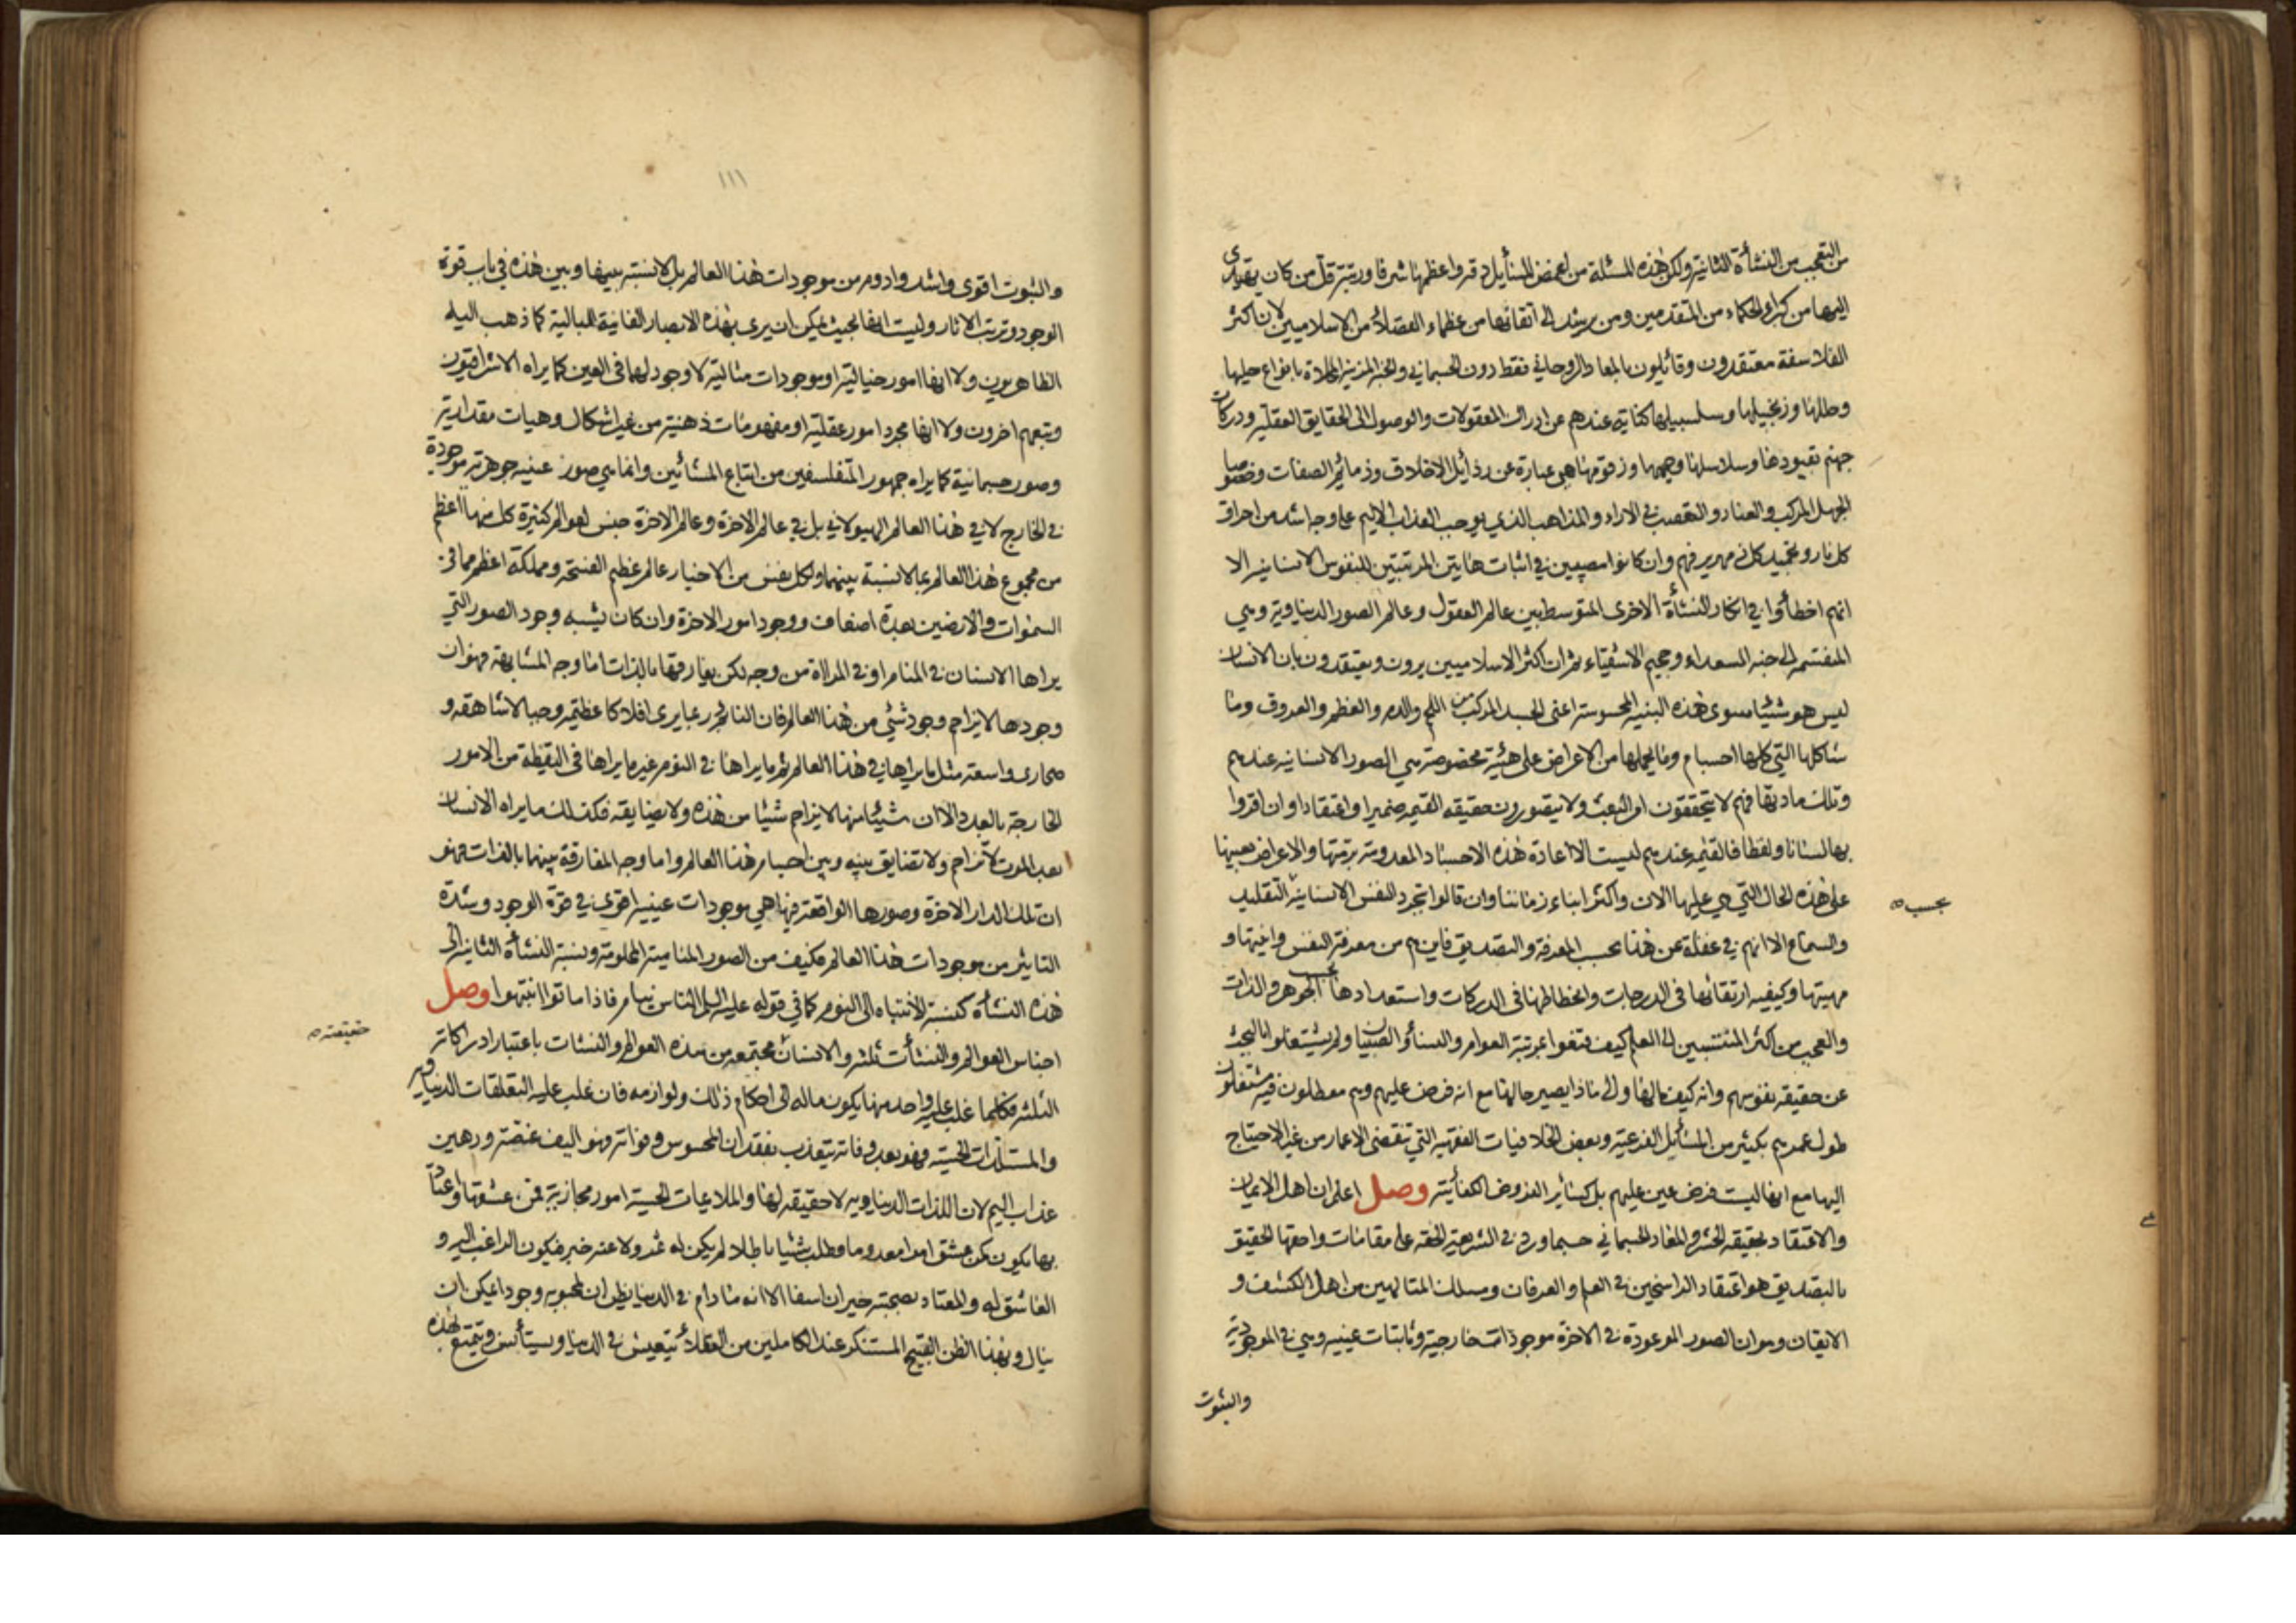 من التعجب من النشأة الثانية ولكن هذه المسئلة من اغمض المسائل دقة واعظمها شرفا ورتبة قل من كان يهتدى
اليها من كبراء الحكماء من المتقدمين ومن يرشد الى اتقانها من عظماء الفضلاء من الاسلاميين لان اكثر
الفلاسفة معتقدون وقائلون بالمعاد الروحاني فقط دون الجسماني والجنة المزينة بانواع حليها
وحللها وزنجبيلها وسلسبيلها كناية عندهم عن ادراك المعقولات والوصول الى الحقايق العقلية ودركات
جهنم بقيودها وسلاسلها وحميمها وزقومها هي عبارة عن رذائل الاخلاق وذمائم الصفات وخصوصا
الجهل المركب والعناد والتعصب في الاراء والمذاهب الذي يوجب العذاب الاليم على وجه اشد من احراق
كل نار وتجميد كل زمهرير فهم وان كانوا مصيبين في اثبات هاتين المرتبتين للنفوس الانسانية الا
انهم اخطأوا في انكار النشأة الاخرى المتوسط بين عالم العقول وعالم الصور الدنياوية وهي
المنقسمة الى جنة السعداء وجحيم الاشقياء ثم ان اكثر الاسلاميين يرون ويعتقدون بان الانسان
ليس هو شيئا سوى هذه البنية المحسوسة اعنى الجسد المركب من اللحم والدم والعظم والعروق وما
شاكلها التي كلها اجسام وما يحلها من الاعراض على هيئة مخصوصة هي الصور الانسانية عندهم
وتلك مادتها فهم لا يتحققون امر البعث ولا يتصورون حقيقة القيمة ضميرا واعتقادا وان اقروا
بها لسانا ولفظا فالقيمة عندهم ليست الا اعادة هذه الاجساد المعدومة برمتها والاعراض بعينها
على هذه الحال التي هي عليها الان واكثر ابناء زماننا وان قالوا بتجرد النفس الانسانية التقليد
بحسب
والسماع الا انهم في غفلة عن هذا بحسب المعرفة والتصديق فاين هم من معرفة النفس وانيتها و
مهيتها وكيفية ارتقائها في الدرجات وانحطاطها في الدركات واستعدادها بحسب الجوهر والذات
والعجب من اكثر المنتسبين الى العلم كيف قنعوا بمرتبة العوام والنساء والصبيان ولم يشتغلوا بالبحث
عن حقيقة نفوسهم وانه كيف مالها والى ماذا يصير حالها مع انه فرض عليهم وهم معطلون فيه مشتغلون
طول عمرهم بكثير من المسائل الفرعية وبعض الخلافيات الفقهية التي تنقضى الاعمار من غير الاحتياج
اليها مع انها ليست فرض عين عليهم بل كسائر الفروض الكفائية وصل اعلم ان اهل الايمان
والاعتقاد بحقيقة الحشر والمعاد الجسماني حسبما ورد في الشريعة الحقة على مقامات واحقها الحقيق
بالتصديق هو اعتقاد الراسخين في العلم والعرفان ومسلك المتالهين من اهل الكشف و
الايقان وهو ان الصور الموعودة في الاخرة موجودات خارجية وثابتات عينية وهي في الموجودية
والثبوت
١١١
والثبوت اقوى واشد وادوم من موجودات هذا العالم بل لا نسبة بينها وبين هذه في باب قوة
الوجود وترتب الاثار وليست انها بحيث يمكن ان يرى بهذه الابصار الفانية البالية كما ذهب اليه
الظاهريون ولا انها امور خيالية او موجودات مثالية لا وجود لها في العين كما يراه الاشراقيون
وتبعهم اخرون ولا انها مجرد امور عقلية او مفهومات ذهنية من غير اشكال وهيات مقدارية
وصور جسمانية كما يراه جمهور المتفلسفين من اتباع المشائين وانما هي صور عينيه جوهرية موجودة
في الخارج لا في هذا العالم الهيولاني بل في عالم الاخرة وعالم الاخرة جنس لعوالم كثيرة كل منها اعظم
من مجموع هذا العالم بما لا نسبة بينهما ولكل نفس من الاخيار عالم عظيم الفسحة ومملكة اعظم مما في
السموات والارضين بعدة اضعاف ووجود امور الاخرة وان كان يشبه وجود الصور التي
يراها الانسان في المنام او في المرآة من وجه لكن يفارقها بالذات اما وجه المشابهة فهو ان
وجودها لا يزاحم وجود شئ من هذا العالم فان النائم ربما يرى افلاكا عظيمة وجبالا شاهقة و
صحارى واسعة مثل ما يراها في هذا العالم ثم ما يراها في النوم غير ما يراها في اليقظة من الامور
الخارجة بالعدد الا ان شيئا منها لا يزاحم شيئا من هذه ولا يضايقه فكذلك ما يراه الانسان
بعد الموت لا تزاحم ولا تضايق بينه وبين اجسام هذا العالم واما وجه المفارقة بينهما بالذات فهو
ان تلك الدار الاخرة وصورها الواقعة فيها هي موجودات عينية اقوى في قوة الوجود وشدة
التاثير من موجودات هذا العالم فكيف من الصور المنامية المحلومة ونسبة النشأة الثانية الى
هذه النشأة كنسبة الانتباه الى النوم كما في قوله عليه السلم الناس نيام فاذا ماتوا انتبهوا وصل
اجناس العوالم والنشأت ثلثة والانسان مجتمعة من هذه العوالم والنشئات باعتبار ادراكاته
حقيقته
الثلثة فكلما غلب عليه واحد منها يكون ماله الى احكام ذلك ولوازمه فان غلب عليه التعلقات الدنياويه
والمستلذات الحسية فهو بعد وفاته يتعذب بفقدان المحسوس وفواته وهو اليف غصة ورهين
عذاب اليم لان اللذات الدنياويه لا حقيقة لها والملايمات الحسية امور مجازية فمن عشقها
بها يكون كمن عشق امرا معدوما وطلب شيئا باطلا لم يكن له اثر ولا عنه خبر فيكون الراغب اليه و
العاشق له والمعتاد بصحبته حيران اسفا الا انه ما دام في الدنيا يظن ان لمحبوبه وجودا يمكن ان
ينال وبهذا الظن القبيح المستنكر عند الكاملين من العقلاء يتعيش في الدنيا ويستأنس ويتمتع بهذه